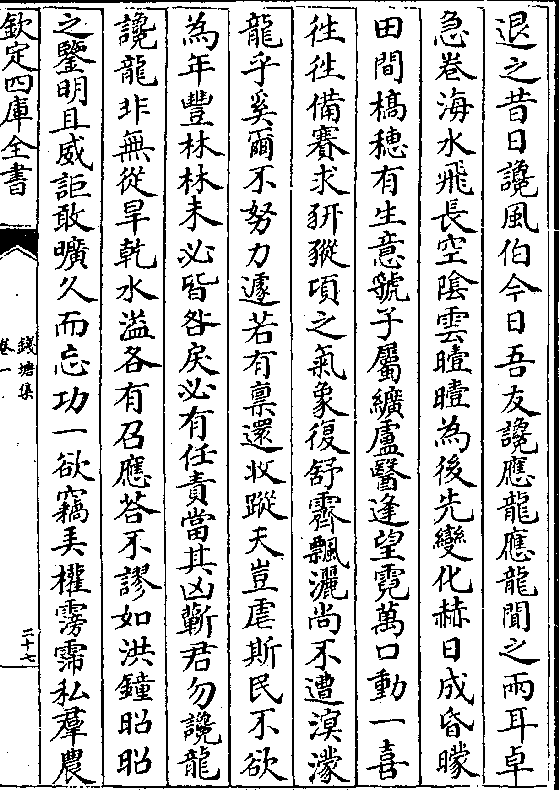 退之昔日讒風伯今日吾友讒應龍應龍聞之兩耳卓
急卷海水飛長空陰雲曀曀為後先變化赫日成昏曚
田間槁穗有生意虢子屬纊盧醫逢望霓萬口動一喜
徃徃備賽求豜豵項之氣象復舒霽飄灑尚不遭溟濛
龍乎奚爾不努力遽若有稟還收蹤夫豈虐斯民不欲
為年豐林林未必皆咎戾必有任責當其凶蘄君勿讒龍
讒龍非無從旱乾水溢各有召應荅不謬如洪鐘昭昭
之鑒明且威詎敢曠久而忘功一欲竊弄權霶霈私羣農
欽定四庫全書
錢塘集
卷一
二十七